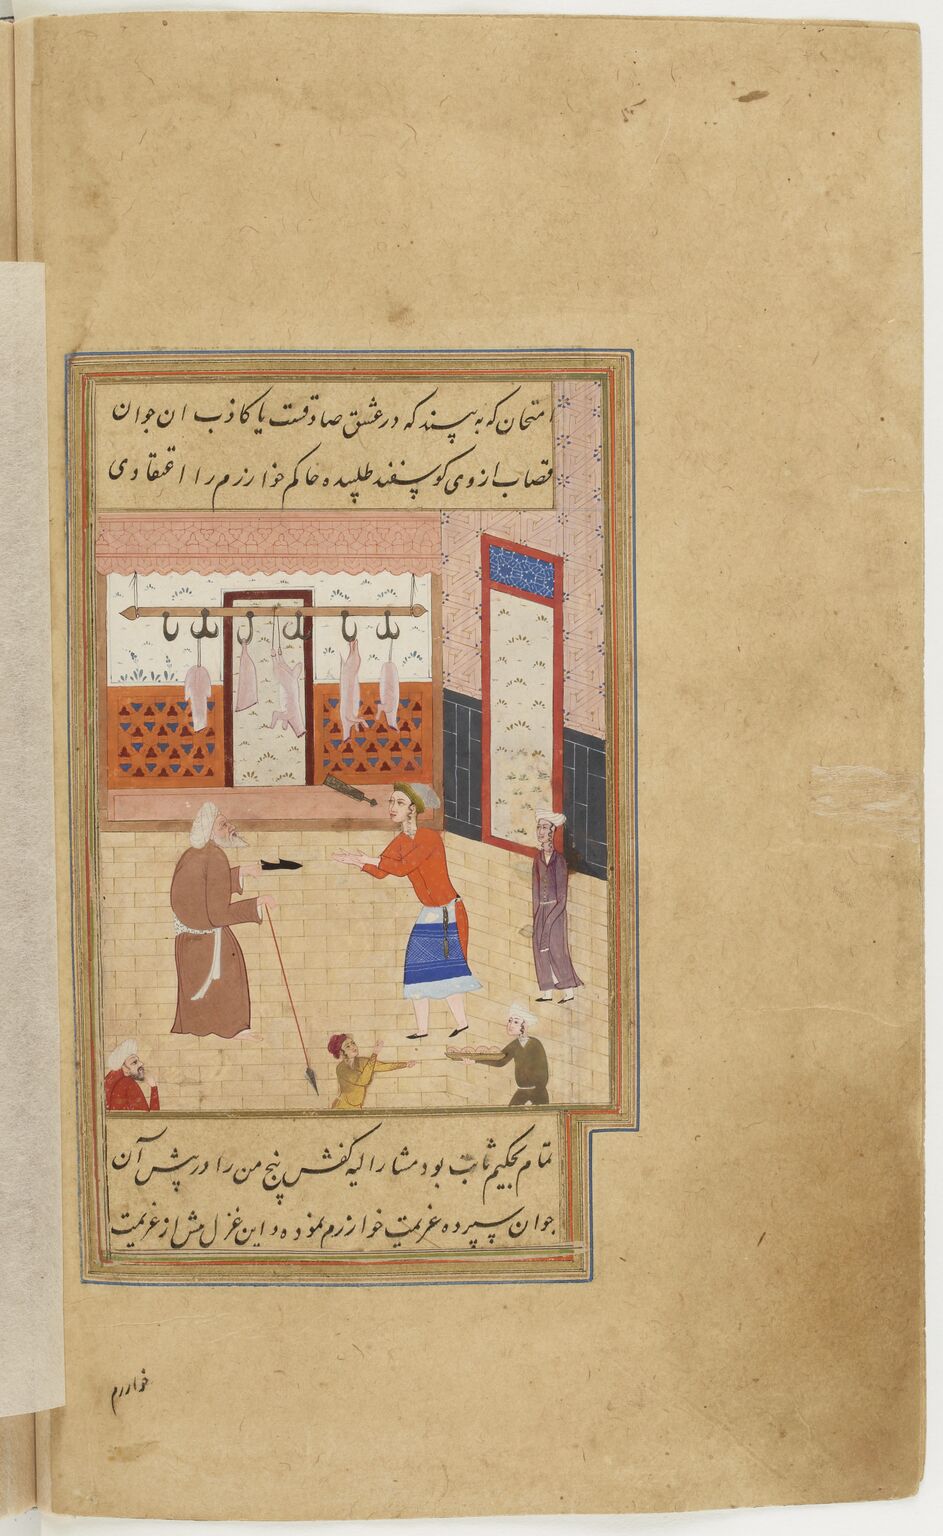 امتحان که به بیند که در عشق صادقست یا کاذب ان جوان
قصاب از وی کوسفند طلبیده حاکم خوارزم را اعتقادی
تمام بحکیم ثابت بود مشارالیه کفش پنج من را در پیش آن
جوان سپرده عزیمت خوارزم نموده و این غزل مش از عزیمت
خوارزم